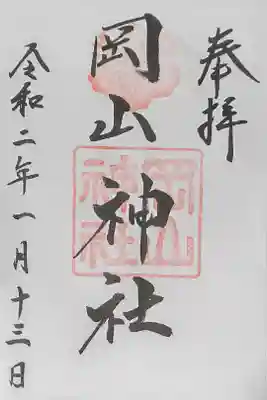 奉拝
岡山神社
岡山神社
令和二年一月十三日